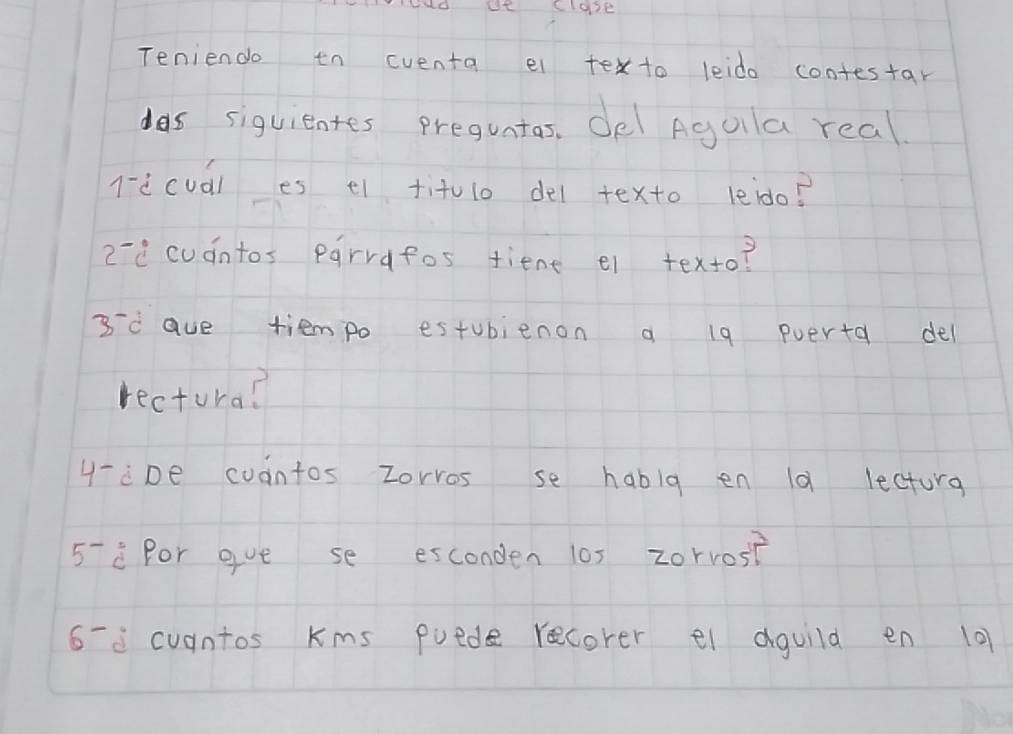 de clase
Teniendo en cuenta el texto leido contestar
las siguientes preguntas. del Aguila real.
1-¿cuál es el titulo del texto leido?
2-¿cuántos párrafos tiene el texto?
3-¿que tiempo estubienon a la puerta del
rectura?
4-¿De cuántos zorros se habla en la lectura
5-¿Por que se esconden los zorros?
6-¿cuantos Kms puede recorer el aguila en la